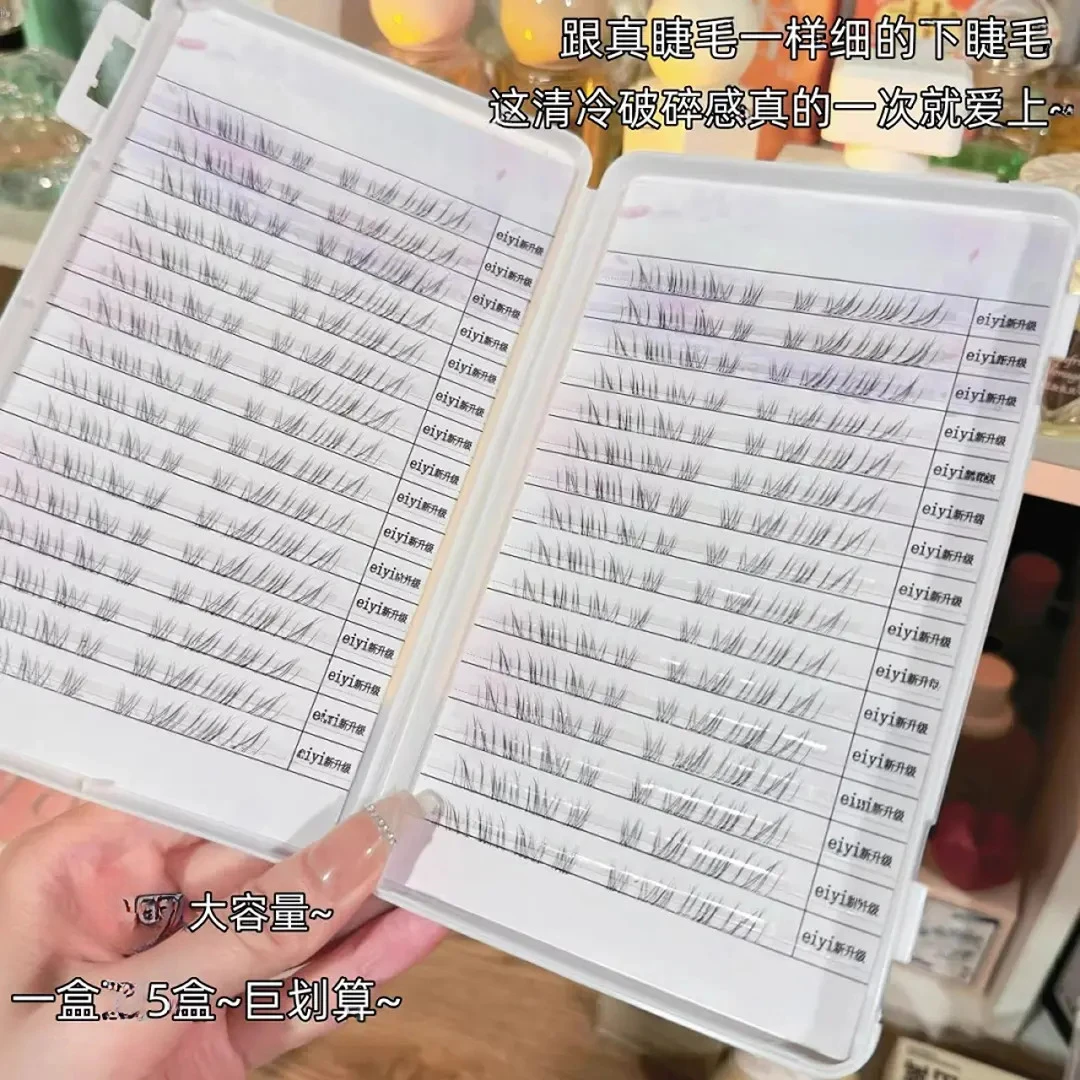 跟真睫毛一样细的下睫毛
这清冷破碎感真的一次就爱上~
eiyi新升级
eiyi新升级
eiyi新升级
eiyi新升级
eiyi新升级
eiyi新升级
eiyi新升级
eiyi新升级
eiyi新升级
eiyi新升级
eiyi升级
eiyi新升级
eiyi新升级
eiyi新升级
新升级
eiyi新升级
eiyi新升级
eiyi新升级
eiyi新升级
eiyi新升级
eiyi
eiyi新升级
eiyi新升级
eiyi新升级
eiyi新升级
eiyi新升
eiyi新升级
eiyi新升级
新升级
eiyi新升级
eiyi升级
eiyi新升级
大容量~
一盒 5盒~巨划算~